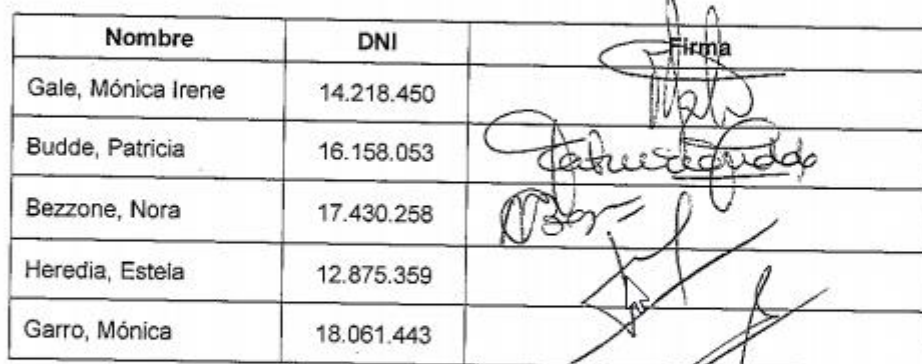 Nombre DNI Firma
Gale, Mónica Irene 14.218.450
Budde, Patricia 16.158.053 Patricia Budde
Bezzone, Nora 17.430.258
Heredia, Estela 12.875.359
Garro, Mónica 18.061.443